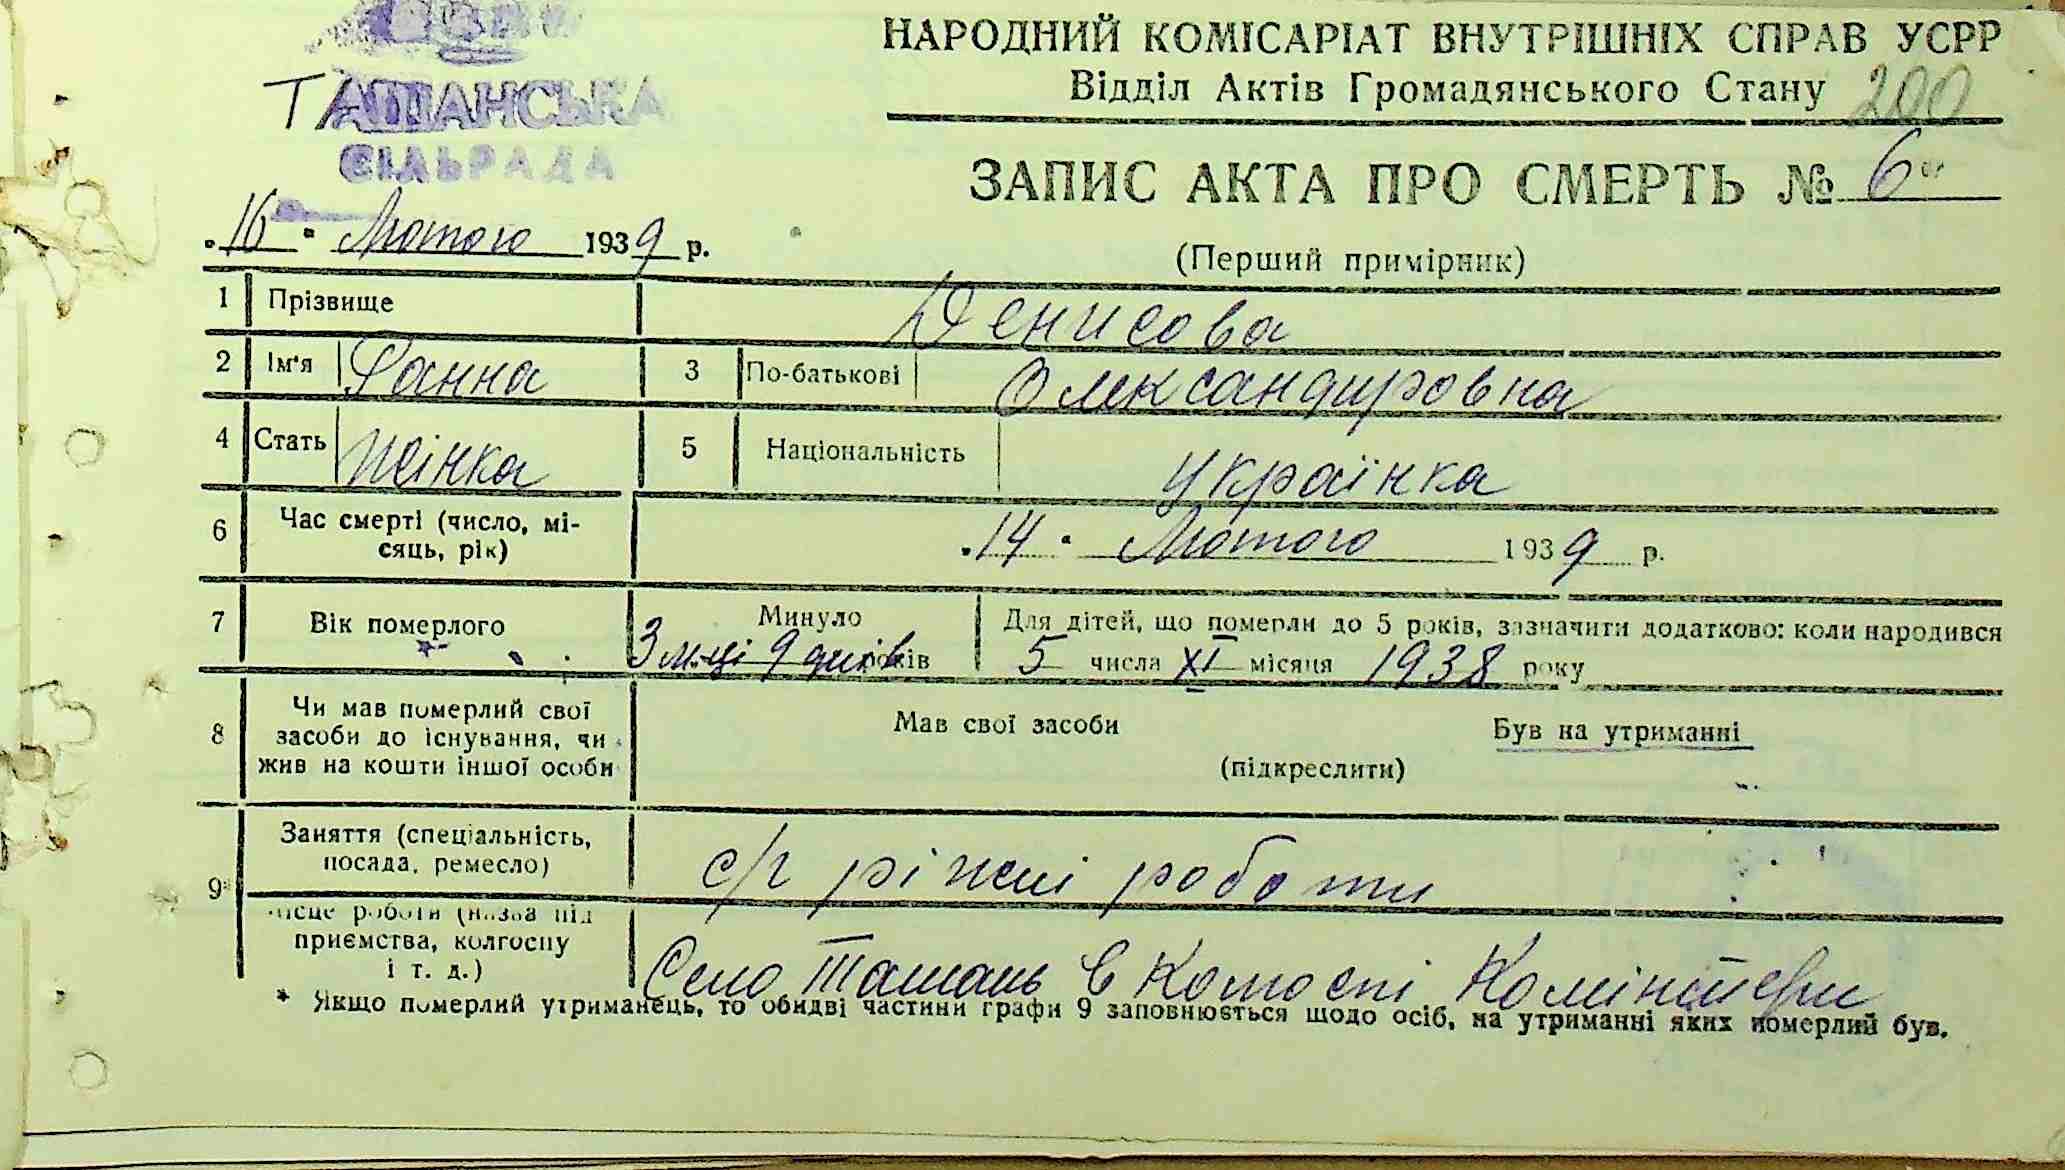 НАРОДНИЙ КОМІСАРІАТ ВНУТРІШНІХ СПРАВ УСРР
Відділ Актів Громадянського Стану 200
ТАШАНСЬКА
СІЛЬРАДА
ЗАПИС АКТА ПРО СМЕРТЬ № 6
„16" Лютого 1939 р.
(Перший примірник)
1 Прізвище Денисова
2 Ім'я Ганна 3 По-батькові Олександровна
4 Стать Жінка 5 Національність Українка
6 Час смерті (число, мі-
сяць, рік) „14" Лютого 1939 р.
7 Вік померлого Минуло 3 м-ці 9 днів років Для дітей, що померли до 5 років, зазначити додатково: коли народився
5 числа XI місяця 1938 року
8 Чи мав померлий свої
засоби до існування, чи
жив на кошти іншої особи
Мав свої засоби Був на утриманні
(підкреслити)
9* Заняття (спеціальність,
посада, ремесло) с/г ріжні роботи
Місце роботи (назва під
приємства, колгоспу
і т. д.) Село Ташань в Колгоспі Комінтерн
* Якщо померлий утриманець, то обидві частини графи 9 заповнюється щодо осіб, на утриманні яких померлий був.